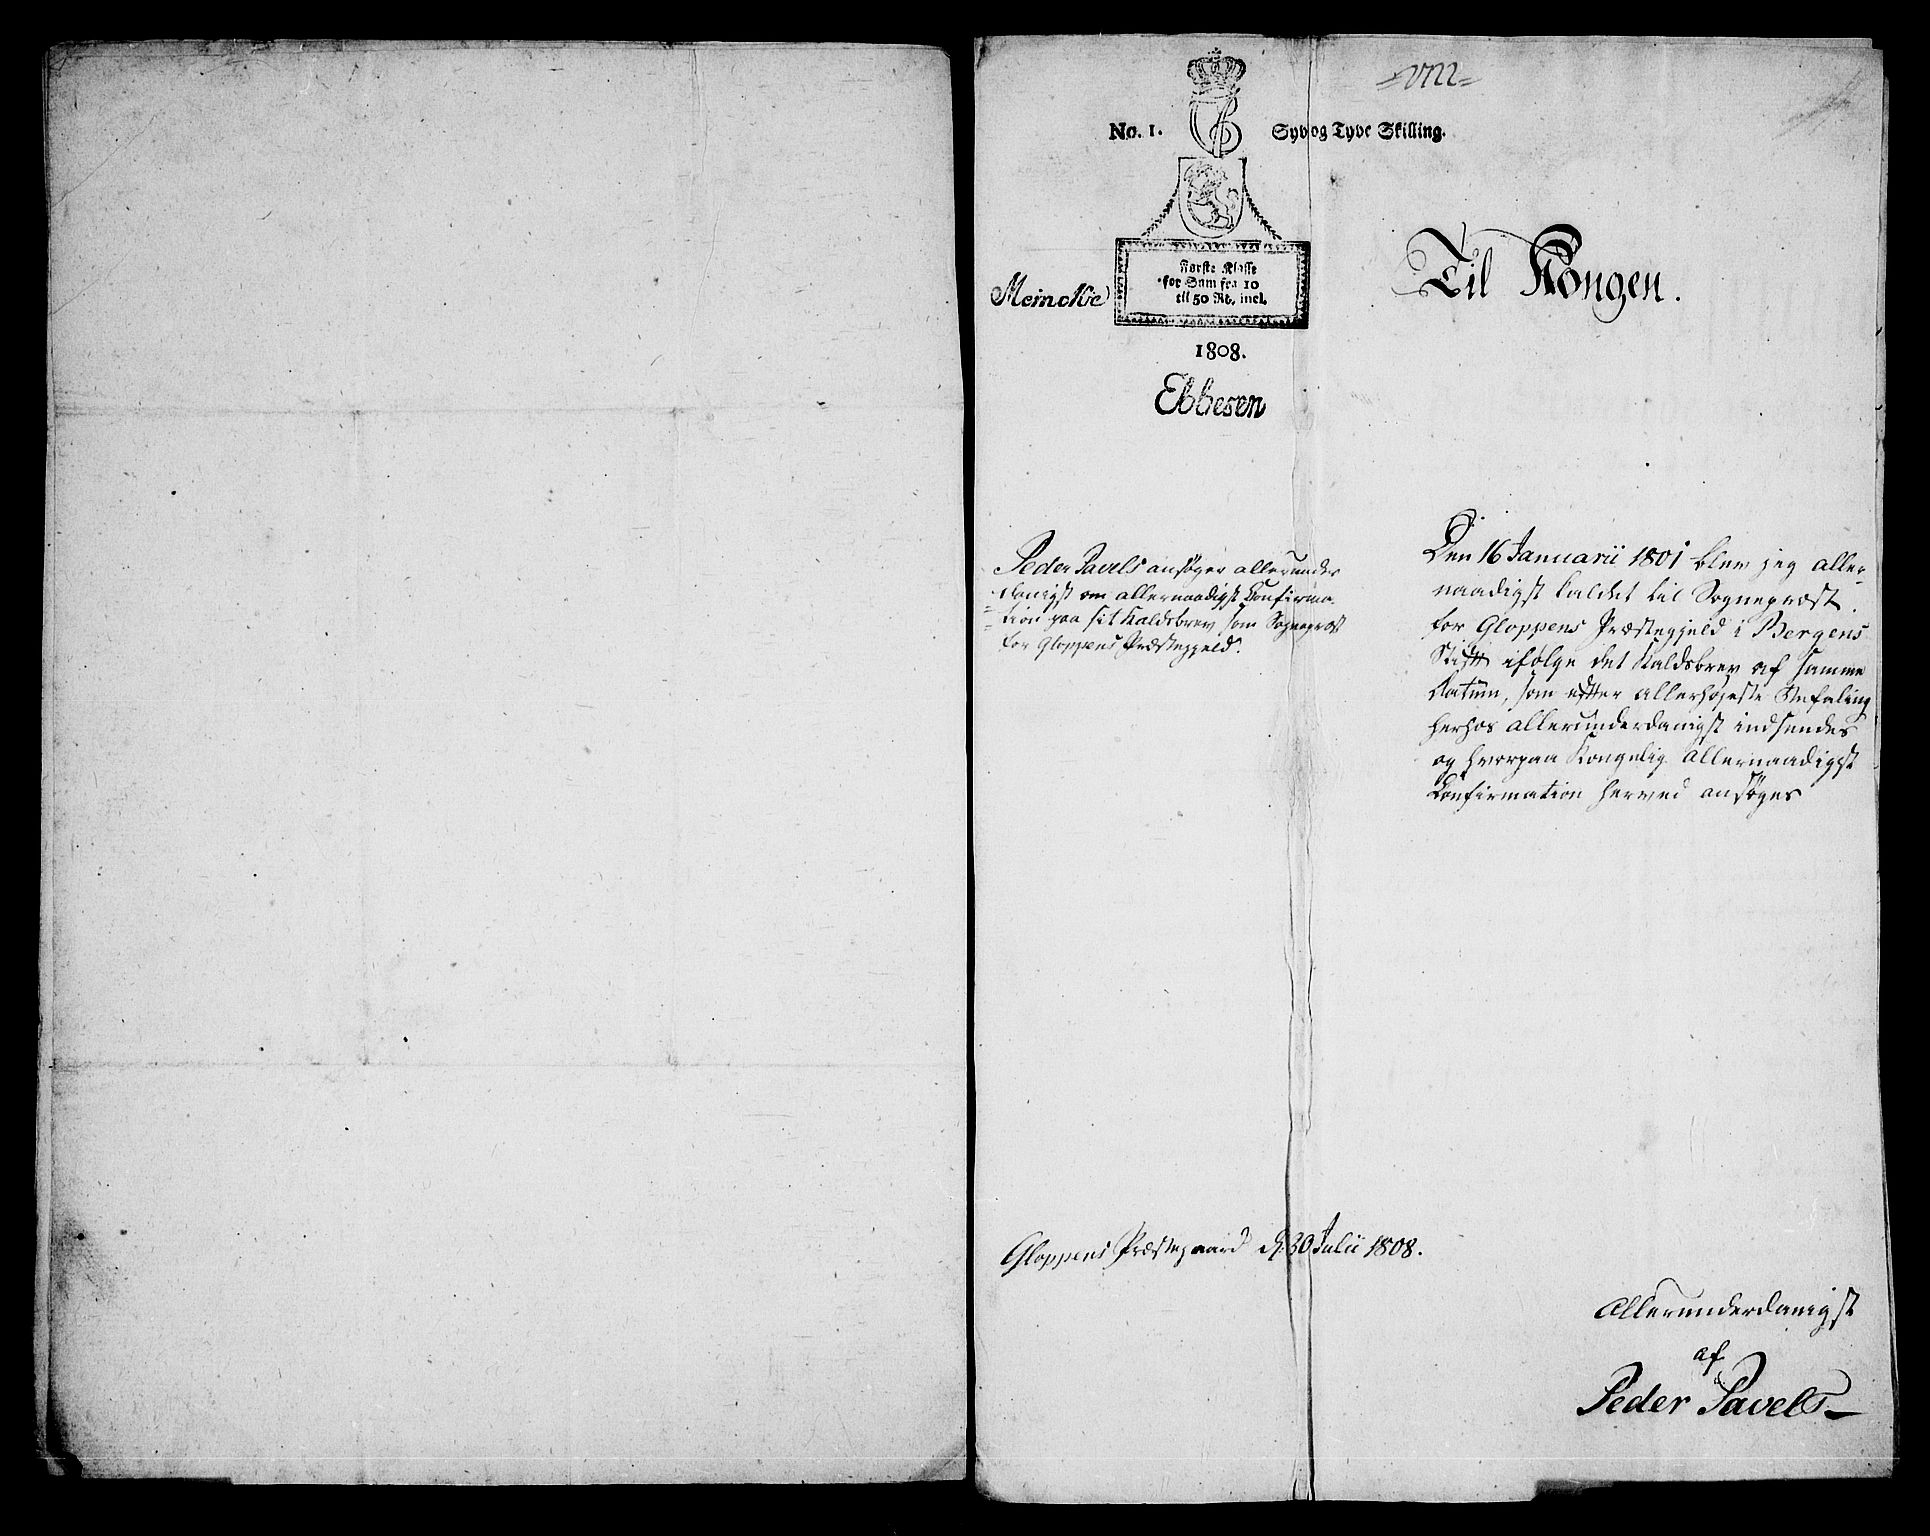 No. 1.
Syv og Tyve Skilling.
Første Klasse
for Sum fra 10
til 50 Rd. incl.
Meincke
1808.
Ebbesen
Til Kongen.
Peder Pavels ansøger allerunder
danigst om allernaadigst Confirma-
tion paa sit Kaldsbrev som Sognepræst
for Gloppens Præstegjeld.
Den 16 Januarii 1801 blev jeg aller-
naadigst kaldet til Sognepræst
for Gloppens Præstegjeld i Bergens
Stift ifølge det Kaldsbrev af samme
Datum, som efter allerhøjeste Befaling
herhos allerunderdanigst indsendes
og hvorpaa Kongelig allernaadigst
Confirmation herved ansøges
Gloppens Præstegaard d. 30 Julii 1808.
Allerunderdanigst
af
Peder Pavels